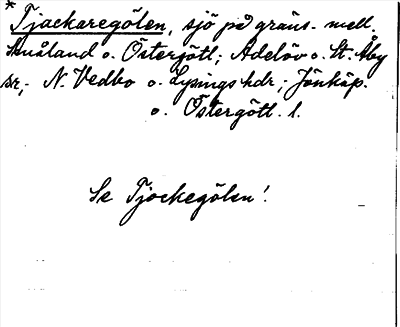 * Tjackaregölen, sjö på gräns. mell.
Småland o. Östergötl.; Adelöv o. St. Åby
snr; N. Vedbo o. Lysings hdr; Jönköp.
o. Östergötl. l.
Se Tjockegölen!